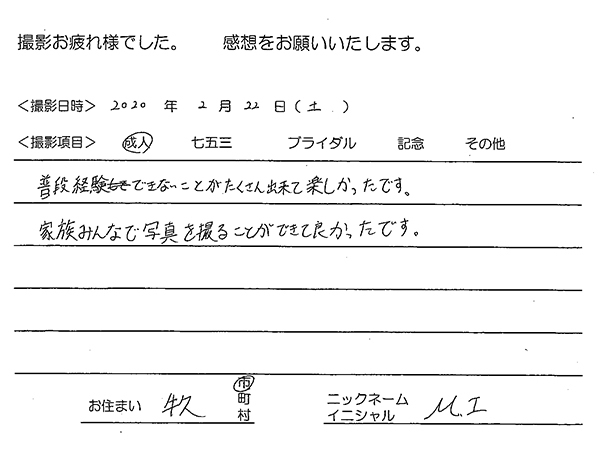 撮影お疲れ様でした。 感想をお願いいたします。
＜撮影日時＞ 2020 年 2 月 22 日(土)
＜撮影項目＞ 成人 七五三 ブライダル 記念 その他
普段経験できないことがたくさん出来て楽しかったです。
家族みんなで写真を撮ることができて良かったです。
お住まい 牛久 市町村
ニックネーム イニシャル M.I